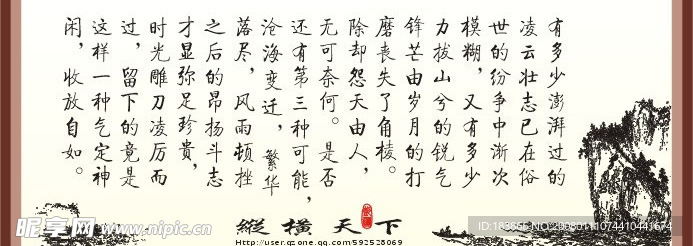 有多少澎湃过的
凌云壮志已在俗
世的纷争中渐次
模糊，又有多少
力拔山兮的锐气
锋芒由岁月的打
磨丧失了角棱。
除却怨天由人，
无可奈何。是否
还有第三种可能，
沧海变迁，繁华
落尽，风雨顿挫
之后的昂扬斗志
才显弥足珍贵，
时光雕刀凌厉而
过，留下的竟是
这样一种气定神
闲，收放自如。
縱橫天下
http://user.qzone.qq.com/592528069
昵享网 www.nipic.cn